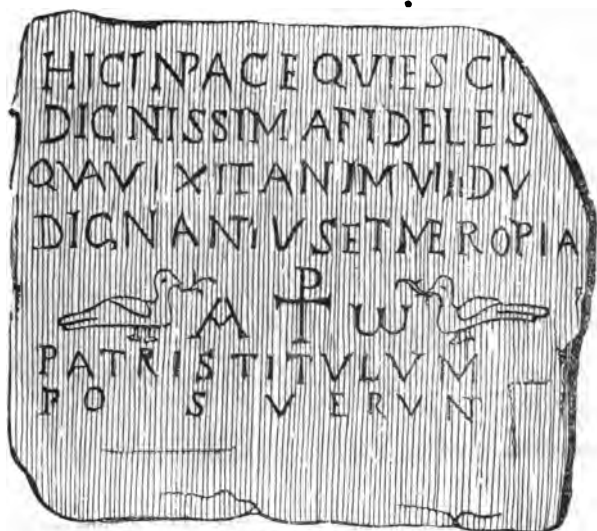 HIC IN PACE QVIESCI
DIGNISSIMA FIDELES
QVAVIXIT AN I M VIII DV
DIGNANTIVS ET MEROPIA
A ⳨ ω
PATRIS TITVLVM
POSVERVN